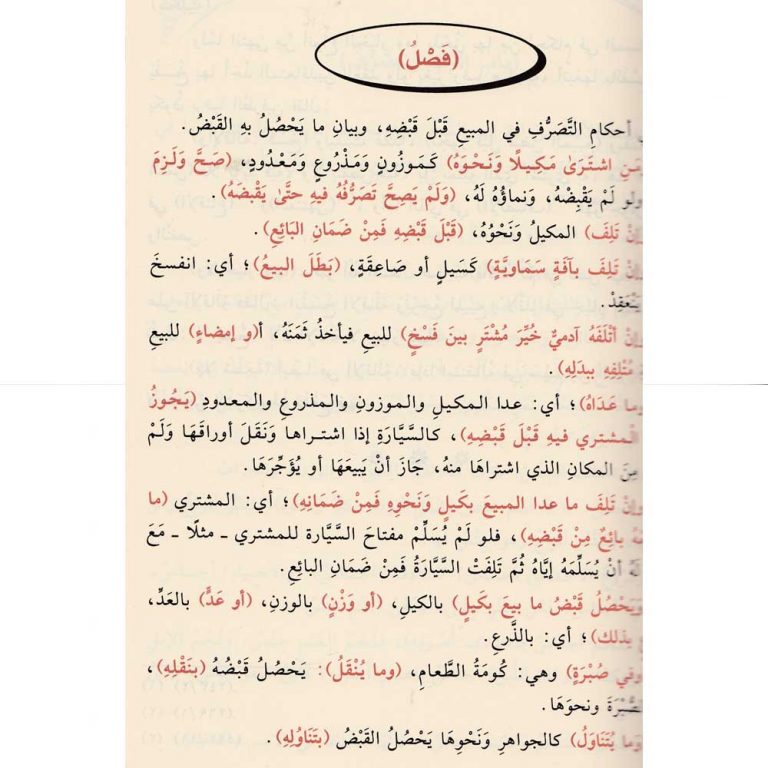 (فَصْلٌ)
أحكامِ التَّصَرُّفِ في المبيعِ قَبْلَ قَبْضِهِ، وبيانِ ما يَحْصُلُ بهِ القَبْضُ.
مَنِ اشتَرَىٰ مَكِيلًا وَنَحْوَهُ) كَمَوْزونٍ وَمَذْروعٍ وَمَعْدُودٍ، (صَحَّ وَلَزِمَ
ولو لَمْ يَقْبِضْهُ، وَنماؤُهُ لَهُ، (وَلَمْ يَصِحَّ تَصَرُّفُهُ فيهِ حتَّىٰ يَقْبِضَهُ)
إنْ تَلِفَ) المكيلُ وَنَحْوُهُ، (قَبْلَ قَبْضِهِ فَمِنْ ضَمَانِ البَائِعِ).
وإنْ تَلِفَ بآفَةٍ سَمَاوِيَّةٍ) كَسَيلٍ أو صَاعِقَةٍ، (بَطَلَ البيعُ)؛ أي: انفسخَ
يَنْعَقِدْ.
وإنْ أتْلَفَهُ آدميٌّ خُيِّرَ مُشْتَرٍ بينَ فَسْخٍ) للبيعِ فيأخذُ ثَمَنَهُ، أ(و إمضاءٍ) للبيعِ
مُتْلِفِهِ ببدَلِهِ).
وما عَدَاهُ)؛ أي: عدا المكيلِ والموزونِ والمذروعِ والمعدودِ (يَجُوزُ
المشتري فيهِ قَبْلَ قَبْضِهِ)، كالسَّيَّارَةِ إذا اشتراها وَنَقَلَ أوراقَهَا وَلَمْ
مِنَ المكانِ الذي اشتراهَا منهُ، جَازَ أنْ يَبيعَهَا أو يُؤَجِّرَهَا.
وإنْ تَلِفَ ما عدا المبيعَ بكَيلٍ وَنَحْوِهِ فَمِنْ ضَمَانِهِ)؛ أي: المشتري (ما
بائِعٌ مِنْ قَبْضِهِ)، فلو لَمْ يُسَلِّمْ مفتاحَ السَّيَّارة للمشتري ـ مثلًا ـ مَعَ
أنْ يُسَلِّمَهُ إيَّاهُ ثُمَّ تَلِفَتْ السَّيَّارَةُ فَمِنْ ضَمَانِ البائِعِ.
وَيَحْصُلُ قَبْضُ ما بيعَ بكَيلٍ) بالكيلِ، (أو وَزْنٍ) بالوزنِ، (أو عَدٍّ) بالعَدِّ،
بذلك)؛ أي: بالذَّرعِ.
وفي صُبْرَةٍ) وهي: كُومَةُ الطَّعامِ، (وما يُنْقَلُ): يَحْصُلُ قَبْضُهُ (بنَقْلِهِ)،
الصُّبْرَةَ ونحوَهَا.
وَما يُتَنَاوَلُ) كالجواهرِ وَنَحْوِهَا يَحْصُلُ القَبْضُ (بتَنَاوُلِهِ).